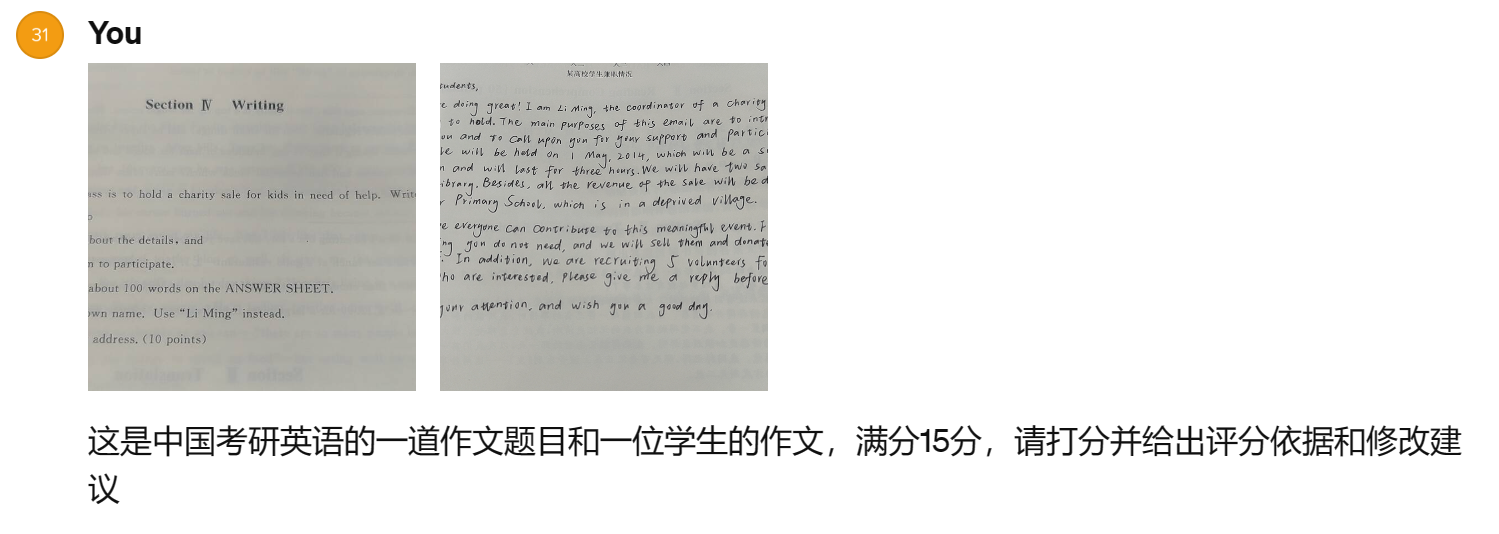 31
You
Section Ⅳ Writing
ass is to hold a charity sale for kids in need of help. Write
bout the details, and
n to participate.
about 100 words on the ANSWER SHEET.
own name. Use “Li Ming” instead.
address. (10 points)
某高校学生兼职情况
tudents,
e doing great! I am Li Ming, the coordinator of a charity
to hold. The main purposes of this email are to intr
ou and to call upon you for your support and partici
le will be held on 1 May, 2014, which will be a s
n and will last for three hours. We will have two sa
ibrary. Besides, all the revenue of the sale will be d
r Primary School, which is in a deprived village.
e everyone can contribute to this meaningful event. I
ng you do not need, and we will sell them and donat
. In addition, we are recruiting 5 volunteers fo
ho are interested, please give me a reply before
your attention, and wish you a good day.
这是中国考研英语的一道作文题目和一位学生的作文，满分15分，请打分并给出评分依据和修改建
议